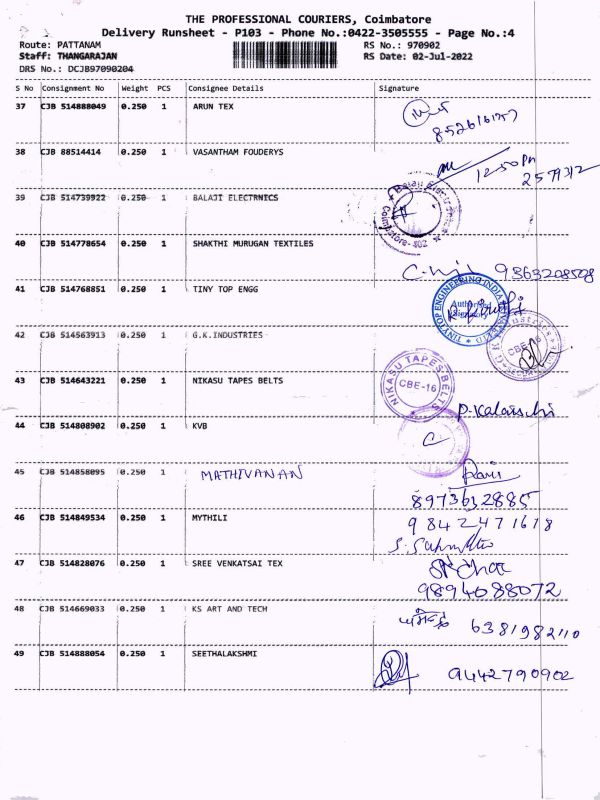 THE PROFESSIONAL COURIERS, Coimbatore
Delivery Runsheet - P103 - Phone No.:0422-3505555 - Page No.:4
Route: PATTANAM RS No.: 970902
Staff: THANGARAJAN RS Date: 02-Jul-2022
DRS No.: DCJB97090204
S No Consignment No Weight PCS Consignee Details Signature
37 CJB 514888049 0.250 1 ARUN TEX
38 CJB 88514414 0.250 1 VASANTHAM FOUDERYS
12-50 Pm
2579312
39 CJB 514739922 0.250 1 BALAJI ELECTRNICS
Balaji Electronics
Coimbatore- 402
40 CJB 514778654 0.250 1 SHAKTHI MURUGAN TEXTILES
9363208508
41 CJB 514768851 0.250 1 TINY TOP ENGG
TINYTOP ENGINEERING INDIA
Authorised
Signatory
42 CJB 514563913 0.250 1 G.K.INDUSTRIES
CBE-16
43 CJB 514643221 0.250 1 NIKASU TAPES BELTS
NIKASU TAPES-BELTS
CBE-16
P.Kalaiselvi
44 CJB 514808902 0.250 1 KVB
45 CJB 514858095 0.250 1 MATHIVANAN
8973632885
46 CJB 514849534 0.250 1 MYTHILI
9842471618
47 CJB 514828076 0.250 1 SREE VENKATSAI TEX
9894088072
48 CJB 514669033 0.250 1 KS ART AND TECH
6381982110
49 CJB 514888054 0.250 1 SEETHALAKSHMI
9442790902